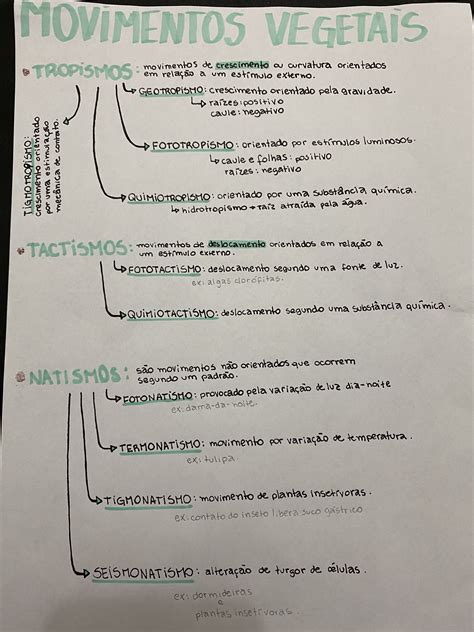 MOVIMENTOS VEGETAIS
TROPISMOS: movimentos de crescimento ou curvatura orientados
em relação a um estímulo externo.
GEOTROPISMO: crescimento orientado pela gravidade.
raízes: positivo
caule: negativo
FOTOTROPISMO: orientado por estímulos luminosos.
caule e folhas: positivo
raízes: negativo
QUIMIOTROPISMO: orientado por uma substância química.
hidrotropismo → raiz atraída pela água.
TIGMOTROPISMO:
crescimento orientado
por uma estimulação
mecânica de contato.
TACTISMOS: movimentos de deslocamento orientados em relação a
um estímulo externo.
FOTOTACTISMO: deslocamento segundo uma fonte de luz.
ex: algas clorófitas.
QUIMIOTACTISMO: deslocamento segundo uma substância química.
NATISMOS: são movimentos não orientados que ocorrem
segundo um padrão.
FOTONATISMO: provocado pela variação de luz dia-noite
ex: dama-da-noite.
TERMONATISMO: movimento por variação de temperatura.
ex: tulipa.
TIGMONATISMO: movimento de plantas insetívoras.
ex: contato do inseto libera suco gástrico
SEISMONATISMO: alteração de turgor de células.
ex: dormideiras
e
plantas insetívoras.